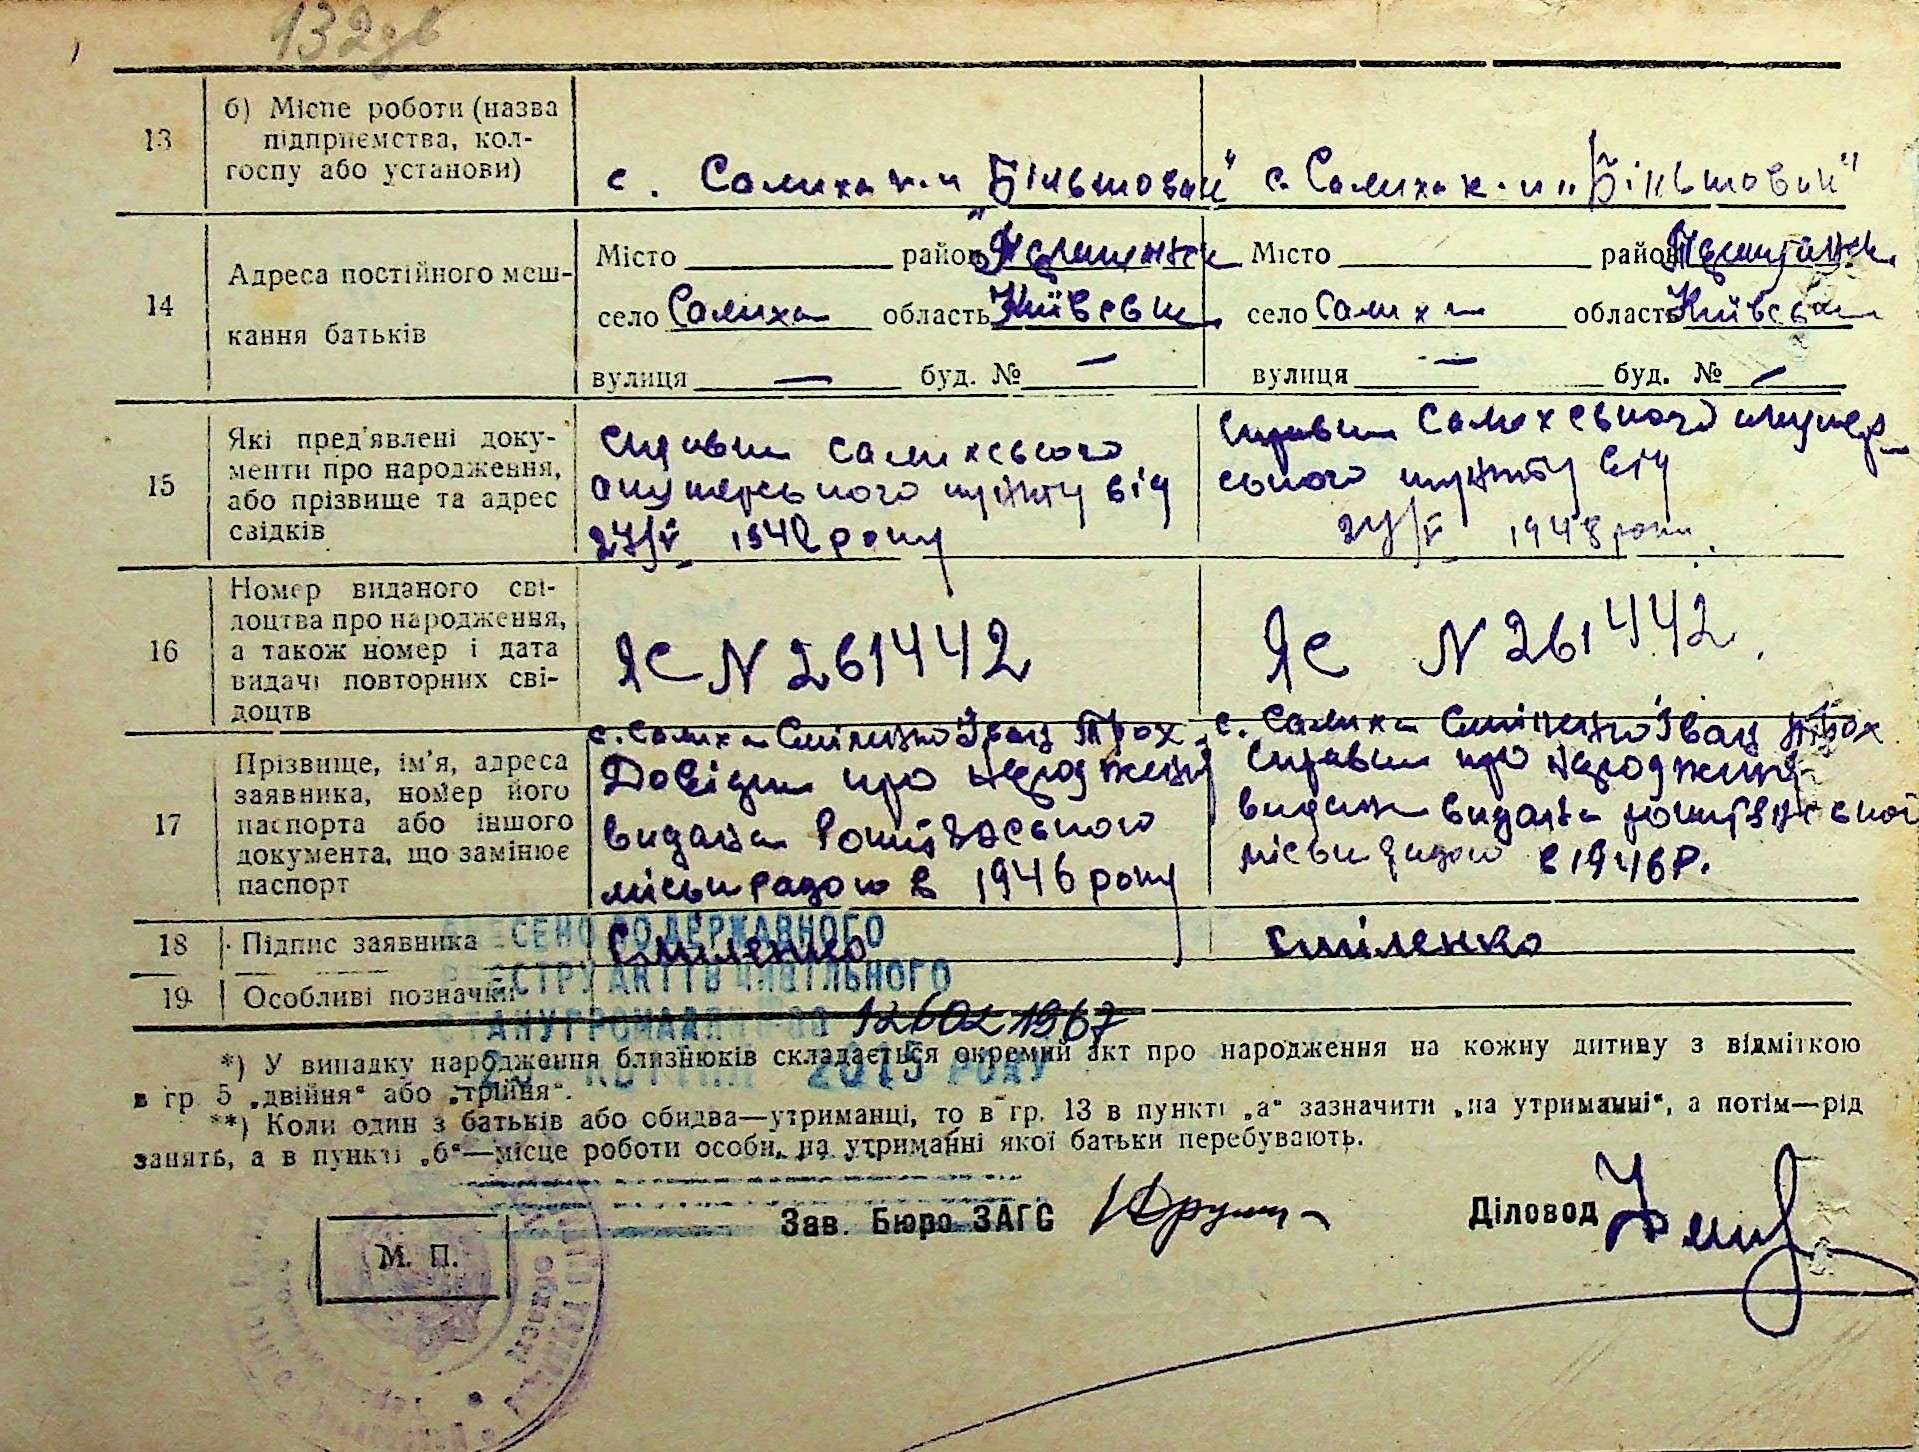 132зв
13
б) Місце роботи (назва
підприємства, кол-
госпу або установи)
с. Самиха к-п "Більшовик"
с. Самиха к-п "Більшовик"
14
Адреса постійного меш-
кання батьків
Місто район
село Самиха область Київськ
вулиця — буд. № —
Місто район
село Самиха область Київськ
вулиця — буд. № —
15
Які пред'явлені доку-
менти про народження,
або прізвище та адрес
свідків
Справка Самихського
акушерського пункту від
27/V 1948 року
Справка Самихського акушер-
ського пункту від
27/V 1948 року.
16
Номер виданого сві-
доцтва про народження,
а також номер і дата
видачі повторних сві-
доцтв
ЯС N 261442
ЯС N 261442.
17
Прізвище, ім'я, адреса
заявника, номер його
паспорта або іншого
документа, що замінює
паспорт
с. Самиха Сміленко Іван Трох.
Довідка про народження
видана
міськрадою в 1946 року
с. Самиха Сміленко Іван Трох
Справка про народження
видана видана
міськрадою в 1946 р.
18
Підпис заявника
Сміленко
Сміленко
19
Особливі позначки
ВНЕСЕНО ДО ДЕРЖАВНОГО
РЕЄСТРУ АКТІВ ЦИВІЛЬНОГО
СТАНУ ГРОМАДЯН ЗА 12602 1967
2015 РОКУ
*) У випадку народження близнюків складається окремий акт про народження на кожну дитину з відміткою
в гр. 5 „двійня“ або „трійня“.
**) Коли один з батьків або обидва—утриманці, то в гр. 13 в пункті „а“ зазначити „на утриманні“, а потім—рід
занять, а в пункті „б“—місце роботи особи, на утриманні якої батьки перебувають.
М. П.
Зав. Бюро ЗАГС
Діловод